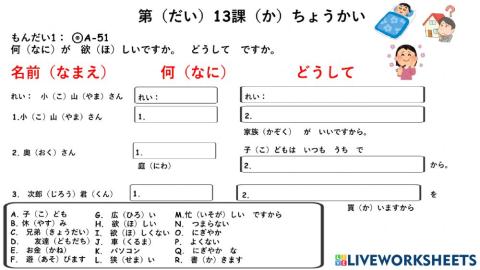 第（だい）13課（か）ちょうかい
もんだい1： ◉A-51
何（なに）が 欲（ほ）しいですか。 どうして ですか。
名前（なまえ） 何（なに） どうして
れい： 小（こ）山（やま）さん れい： れい：
1.小（こ）山（やま）さん 1. 2.
家族（かぞく） が いいですから。
2. 奥（おく）さん 1. 子（こ）どもは いつも うち で
庭（にわ） 2. から。
3. 次郎（じろう）君（くん） 1. 2. を
買（か）いますから
A. 子（こ）ども G. 広（ひろ）い M.忙（いそが）しい ですから
B. 休（やす）み H. 欲（ほ）しい N. つまらない
C. 兄弟（きょうだい） I. 欲（ほ）しくない O. にぎやか
D. 友達（どもだち） J. 車（くるま） P. よくない
E. お金（かね） K. パソコン Q. にぎやか な
F. 遊（あそ）びます L. 狭（せま）い R. 書（か）きます
LIVEWORKSHEETS